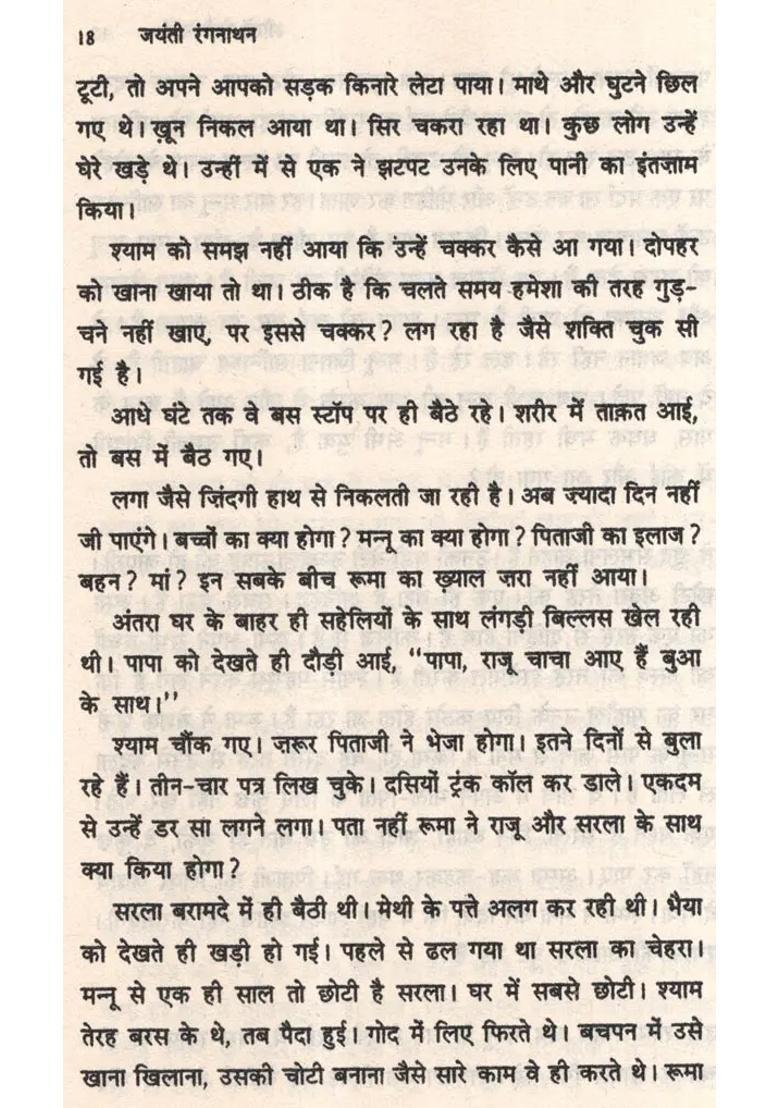 18 जयंती रंगनाथन
टूटी, तो अपने आपको सड़क किनारे लेटा पाया। माथे और घुटने छिल
गए थे। ख़ून निकल आया था। सिर चकरा रहा था। कुछ लोग उन्हें
घेरे खड़े थे। उन्हीं में से एक ने झटपट उनके लिए पानी का इंतज़ाम
किया।
श्याम को समझ नहीं आया कि उन्हें चक्कर कैसे आ गया। दोपहर
को खाना खाया तो था। ठीक है कि चलते समय हमेशा की तरह गुड़-
चने नहीं खाए, पर इससे चक्कर? लग रहा है जैसे शक्ति चुक सी
गई है।
आधे घंटे तक वे बस स्टॉप पर ही बैठे रहे। शरीर में ताक़त आई,
तो बस में बैठ गए।
लगा जैसे ज़िंदगी हाथ से निकलती जा रही है। अब ज़्यादा दिन नहीं
जी पाएंगे। बच्चों का क्या होगा? मन्नू का क्या होगा? पिताजी का इलाज?
बहन? मां? इन सबके बीच रूमा का ख़्याल ज़रा नहीं आया।
अंतरा घर के बाहर ही सहेलियों के साथ लंगड़ी बिल्लस खेल रही
थी। पापा को देखते ही दौड़ी आई, “पापा, राजू चाचा आए हैं बुआ
के साथ।”
श्याम चौंक गए। ज़रूर पिताजी ने भेजा होगा। इतने दिनों से बुला
रहे हैं। तीन-चार पत्र लिख चुके। दसियों ट्रंक कॉल कर डाले। एकदम
से उन्हें डर सा लगने लगा। पता नहीं रूमा ने राजू और सरला के साथ
क्या किया होगा?
सरला बरामदे में ही बैठी थी। मेथी के पत्ते अलग कर रही थी। भैया
को देखते ही खड़ी हो गई। पहले से ढल गया था सरला का चेहरा।
मन्नू से एक ही साल तो छोटी है सरला। घर में सबसे छोटी। श्याम
तेरह बरस के थे, तब पैदा हुई। गोद में लिए फिरते थे। बचपन में उसे
खाना खिलाना, उसकी चोटी बनाना जैसे सारे काम वे ही करते थे। रूमा